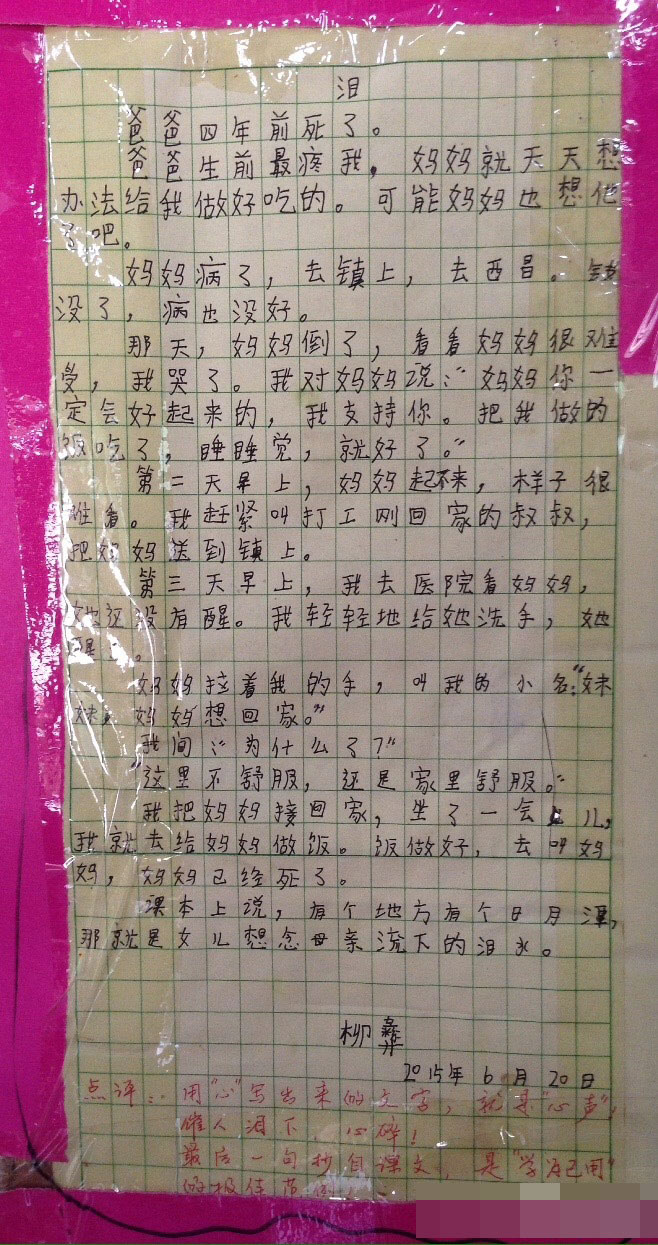 泪
爸爸四年前死了。
爸爸生前最疼我，妈妈就天天想
办法给我做好吃的。可能妈妈也想他
了吧。
妈妈病了，去镇上，去西昌。钱
没了，病也没好。
那天，妈妈倒了，看看妈妈很难
受，我哭了。我对妈妈说：“妈妈你一
定会好起来的，我支持你。把我做的
饭吃了，睡睡觉，就好了。”
第二天早上，妈妈起不来，样子很
难看。我赶紧叫打工刚回家的叔叔，
把妈妈送到镇上。
第三天早上，我去医院看妈妈，
她还没有醒。我轻轻地给她洗手，她
醒了。
妈妈拉着我的手，叫我的小名：“妹
妹，妈妈想回家。”
我问：“为什么了？”
“这里不舒服，还是家里舒服。”
我把妈妈接回家，坐了一会儿，
我就去给妈妈做饭。饭做好，去叫妈
妈，妈妈已经死了。
课本上说，有个地方有个日月潭，
那就是女儿想念母亲流下的泪水。
柳彝
2015年6月20日
点评：用“心”写出来的文字，就是“心声”，
催人泪下、心碎！
最后一句抄自课文，是“学为己用”
的极佳范例